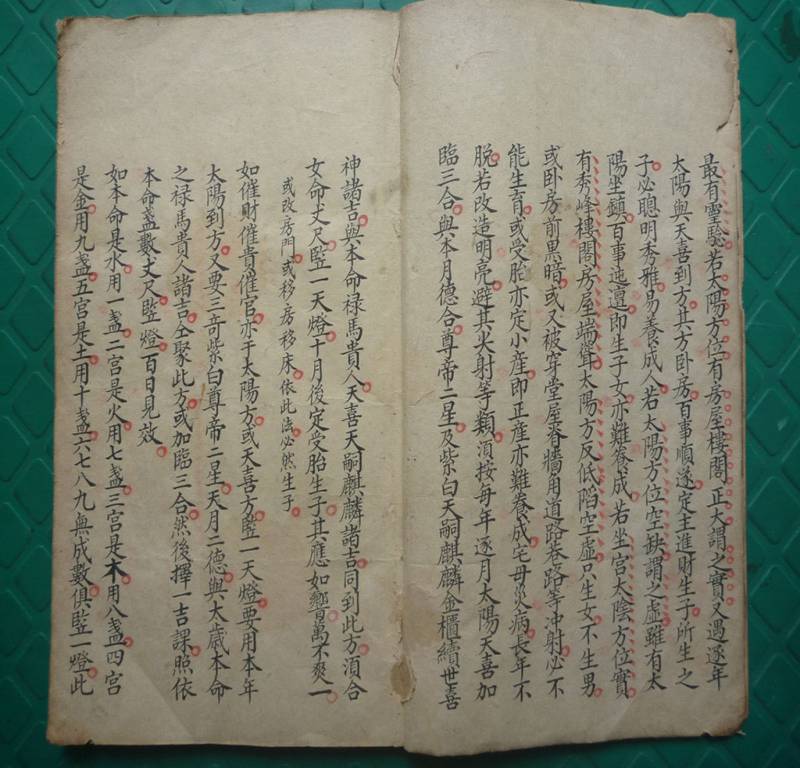 最有靈驗若太陽方位有房屋樓閣正大謂之實又遇逐年
太陽與天喜到方其方卧房百事順遂定主進財生子所生之
子必聰明秀雅易養成人若太陽方位空缺謂之虛雖有太
陽坐鎮百事迍邅即生子女亦難養成若坐宫太陰方位實
有秀峰樓閣房屋端聳太陽方反低陷空虛只生女不生男
或卧房前黑暗或又被穿堂屋脊牆角道路巷路等冲射必不
能生育或受胎亦定小產即正產亦難養成宅母災病長年不
脱若改造明亮避其尖射等類須按每年逐月太陽天喜加
臨三合與本月德合尊帝二星及紫白天嗣麒麟金櫃續世喜
神諸吉與本命禄馬貴人天喜天嗣麒麟諸吉同到此方須合
女命丈尺竪一天燈十月後定受胎生子其應如響萬不爽一
或改房門或移房移床依此法必然生子
如催財催貴催官亦于太陽方或天喜方竪一天燈要用本年
太陽到方又要三奇紫白尊帝二星天月二德與太歲本命
之禄馬貴人諸吉仝聚此方或加臨三合然後擇一吉課照依
本命盞數丈尺竪燈百日見效
如本命是水用一盞二宫是火用七盞三宫是木用八盞四宫
是金用九盞五宫是土用十盞六七八九無成數俱竪一燈此